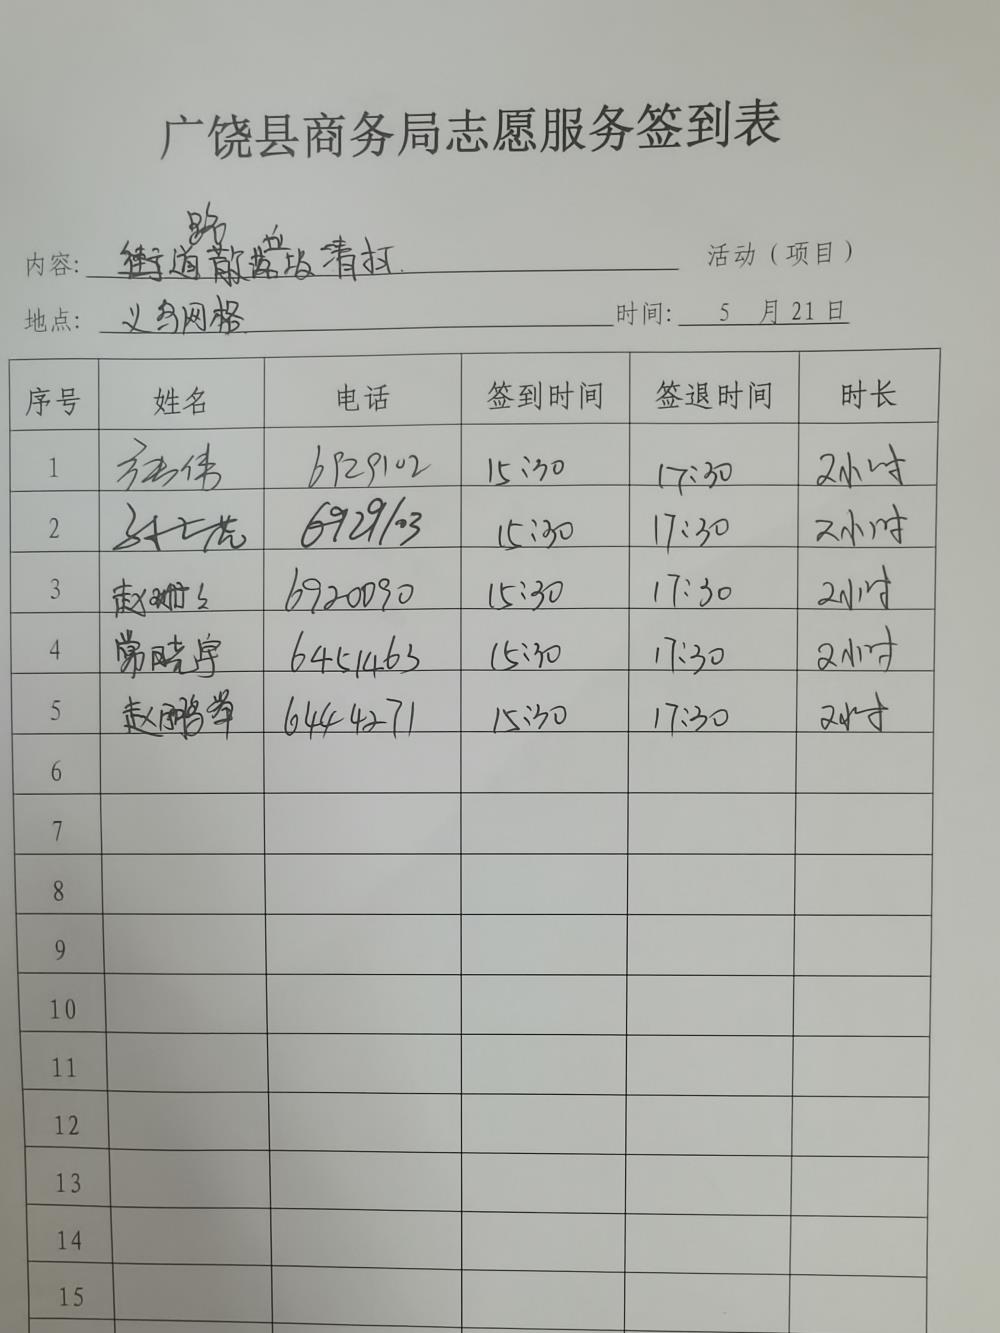 广饶县商务局志愿服务签到表
内容: 街道散落垃圾清扫 活动（项目）
地点: 义乌网格 时间: 5 月 21 日
序号 姓名 电话 签到时间 签退时间 时长
1 6929102 15:30 17:30 2小时
2 6929103 15:30 17:30 2小时
3 赵 6920090 15:30 17:30 2小时
4 常晓宇 6451463 15:30 17:30 2小时
5 赵鹏举 6444271 15:30 17:30 2小时
6
7
8
9
10
11
12
13
14
15